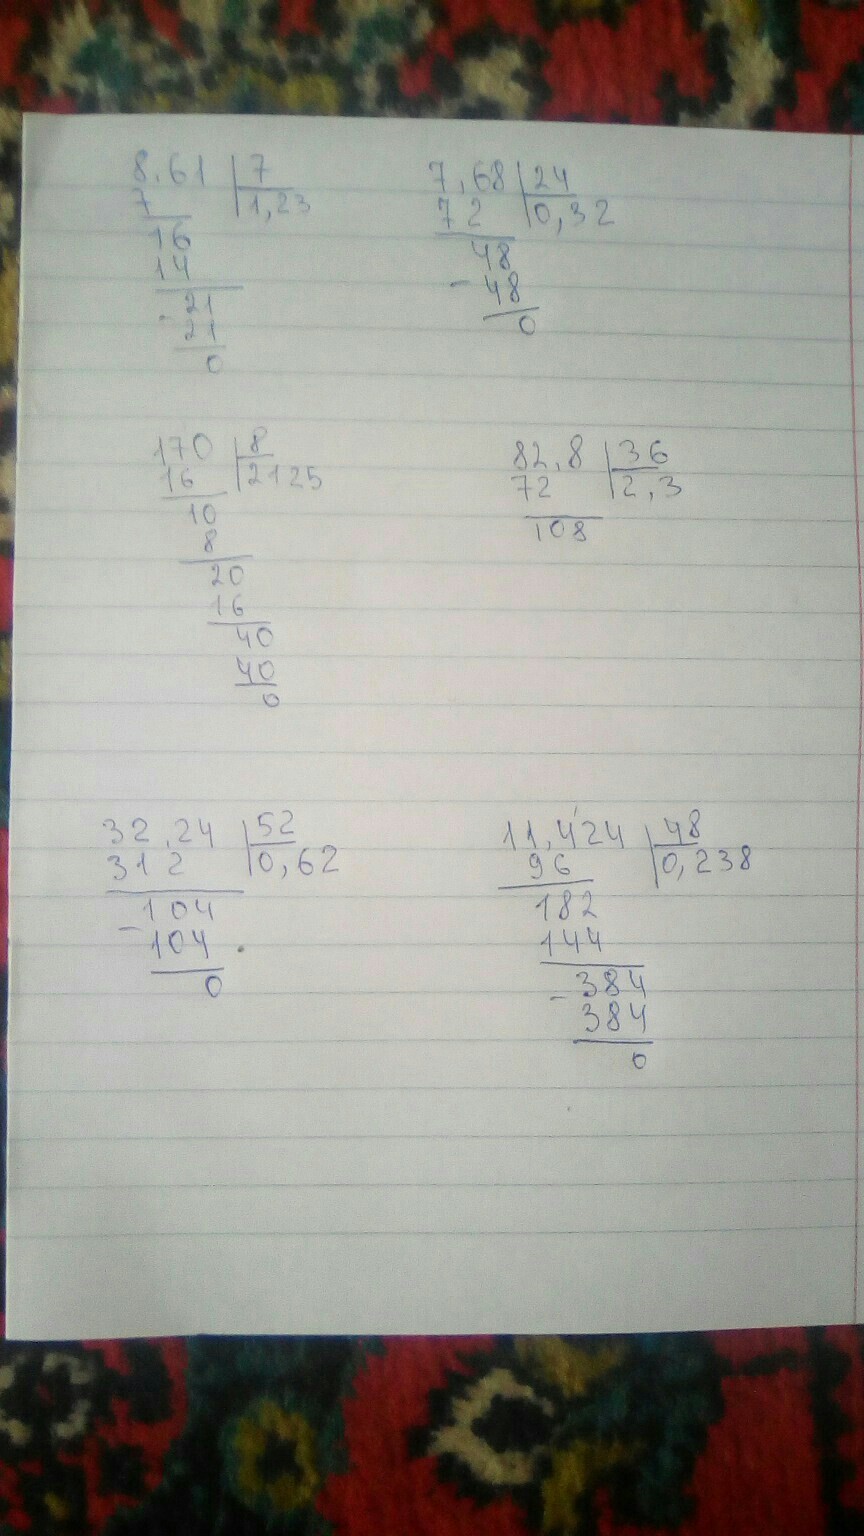 8,61 7
7 1,23
16
14
- 21
21
0
7,68 24
72 0,32
48
- 48
0
170 8
16 2125
10
8
20
16
40
40
0
82,8 36
72 2,3
108
32,24 52
312 0,62
- 104
104
0
11,424 48
96 0,238
182
144
- 384
384
0